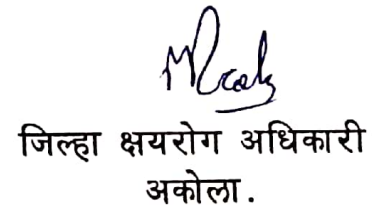 जिल्हा क्षयरोग अधिकारी
अकोला.